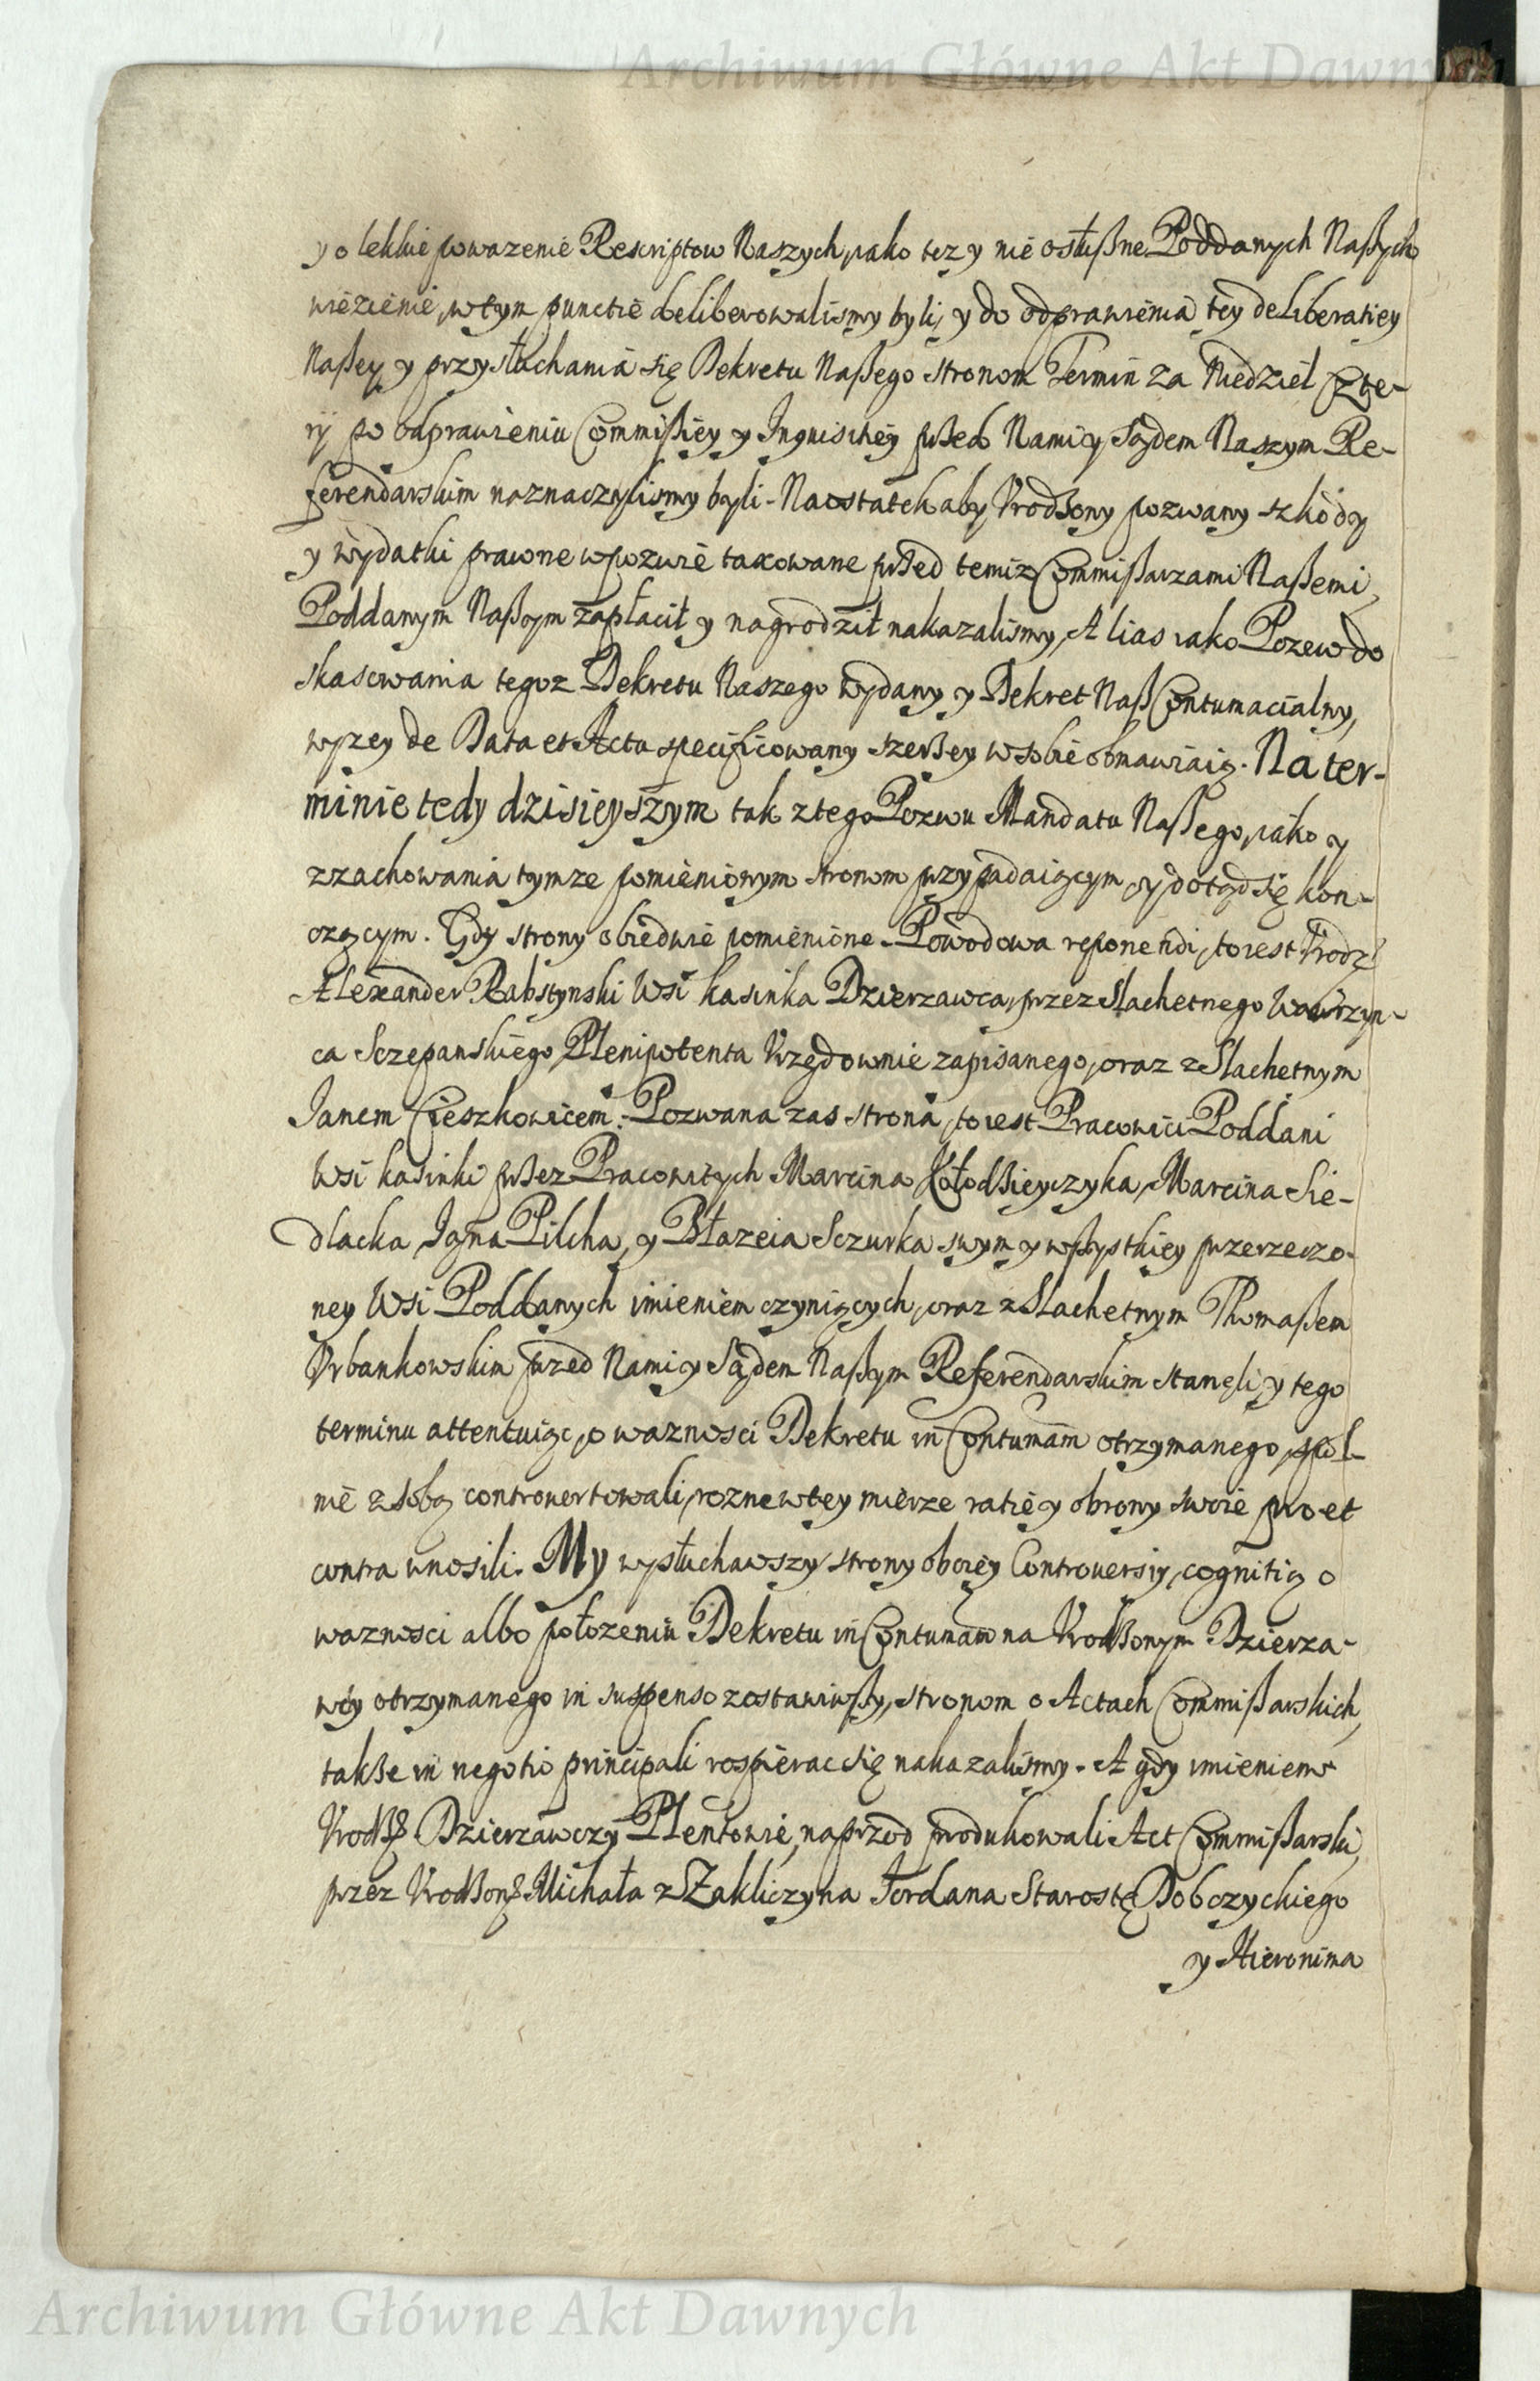 Archiwum Główne Akt Dawnych
y o lekkie powazenie Rescriptow Naszych, iako tez y nie osłuszne Poddanych Naßych
wiezienie, w tym punctie deliberowalismy byli, y do odprawienia tey deliberatiey
Naßey y przysłuchania się Dekretu Naßego stronom Termin za Niedziel Czte-
ry po odprawieniu Commißiey y Inquisitiey przed Nami y Sądem Naszym Re-
ferendarskim naznaczylismy byli. Naostatek aby Vrodzony pozwany szkody
y wydatki prawne w pozwie taxowane przed temiz Commißarzami Naßemi
Poddanym Naßym zapłacił y nagrodził nakazalismy, Alias iako Pozew do
skasowania tegoz Dekretu Naszego wydany y Dekret Naß Contumacialny,
wyzey de Data et Actu specificowany szerßey w sobie obmawiaią. Na ter-
minie tedy dzisieyszym tak z tego Pozwu Mandatu Naßego, iako y
z zachowania tymze pomienionym stronom przypadaiącym, y dotąd się kon-
czącym. Gdy strony obiedwie pomienione. Powodowa reponendi, to iest Vrodz.
Alexander Rabsztynski Wsi Kasinka Dzierzawca, przez Slachetnego Wawrzyn-
ca Sczepanskiego, Plenipotenta Vrzędownie zapisanego, oraz z Slachetnym
Janem Cieszkowicem. Pozwana zas strona, to iest Pracowici Poddani
Wsi Kasinki przez Pracowitych Marcina Kołodzieyczyka, Marcina Sie-
dlacka, Jana Pilcha, y Błazeia Sczurka swym y wßystkiey przerzeczo-
ney Wsi Poddanych imieniem czyniących, oraz z Slachetnym Thomaßem
Vrbankowskim przed Nami y Sądem Naßym Referendarskim stanęli, y tego
terminu attentuiąc, o waznosci Dekretu in Contumam otrzymanego, spol-
nie z sobą controvertowali, rozne w tey mierze ratie y obrony swoie pro et
contra wnosili. My wysłuchawszy strony oboiey Controversiy, cognitią o
waznosci albo połozeniu Dekretu in Contumam na Vrodzonym Dzierza-
wcy otrzymanego in suspenso zostawiwßy, stronom o Actach Commißarskich,
także in negotio principali rospierac się nakazalismy. A gdy imieniem
Vrodz. Dzierzawczy Plentowie, naprzod produkowali Act Commißarski,
przez Vrodzone Michała z Zakliczyna Jordana Starostę Dobczyckiego
y Hieronima
Archiwum Główne Akt Dawnych